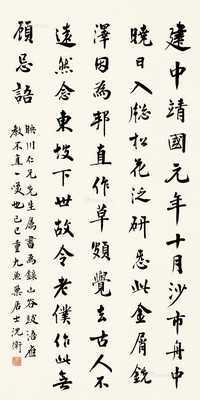 建中靖國元年十月沙市舟中
曉日入牕松花泛研愁此金屑銳
澤因為邦直作草頗覺去古人不
遠然念東坡下世故令老僕作此無
顧忌語
映川仁兄先生屬書為錄山谷跋語應
教不直一噱也己巳重九魚藁居士沈衛